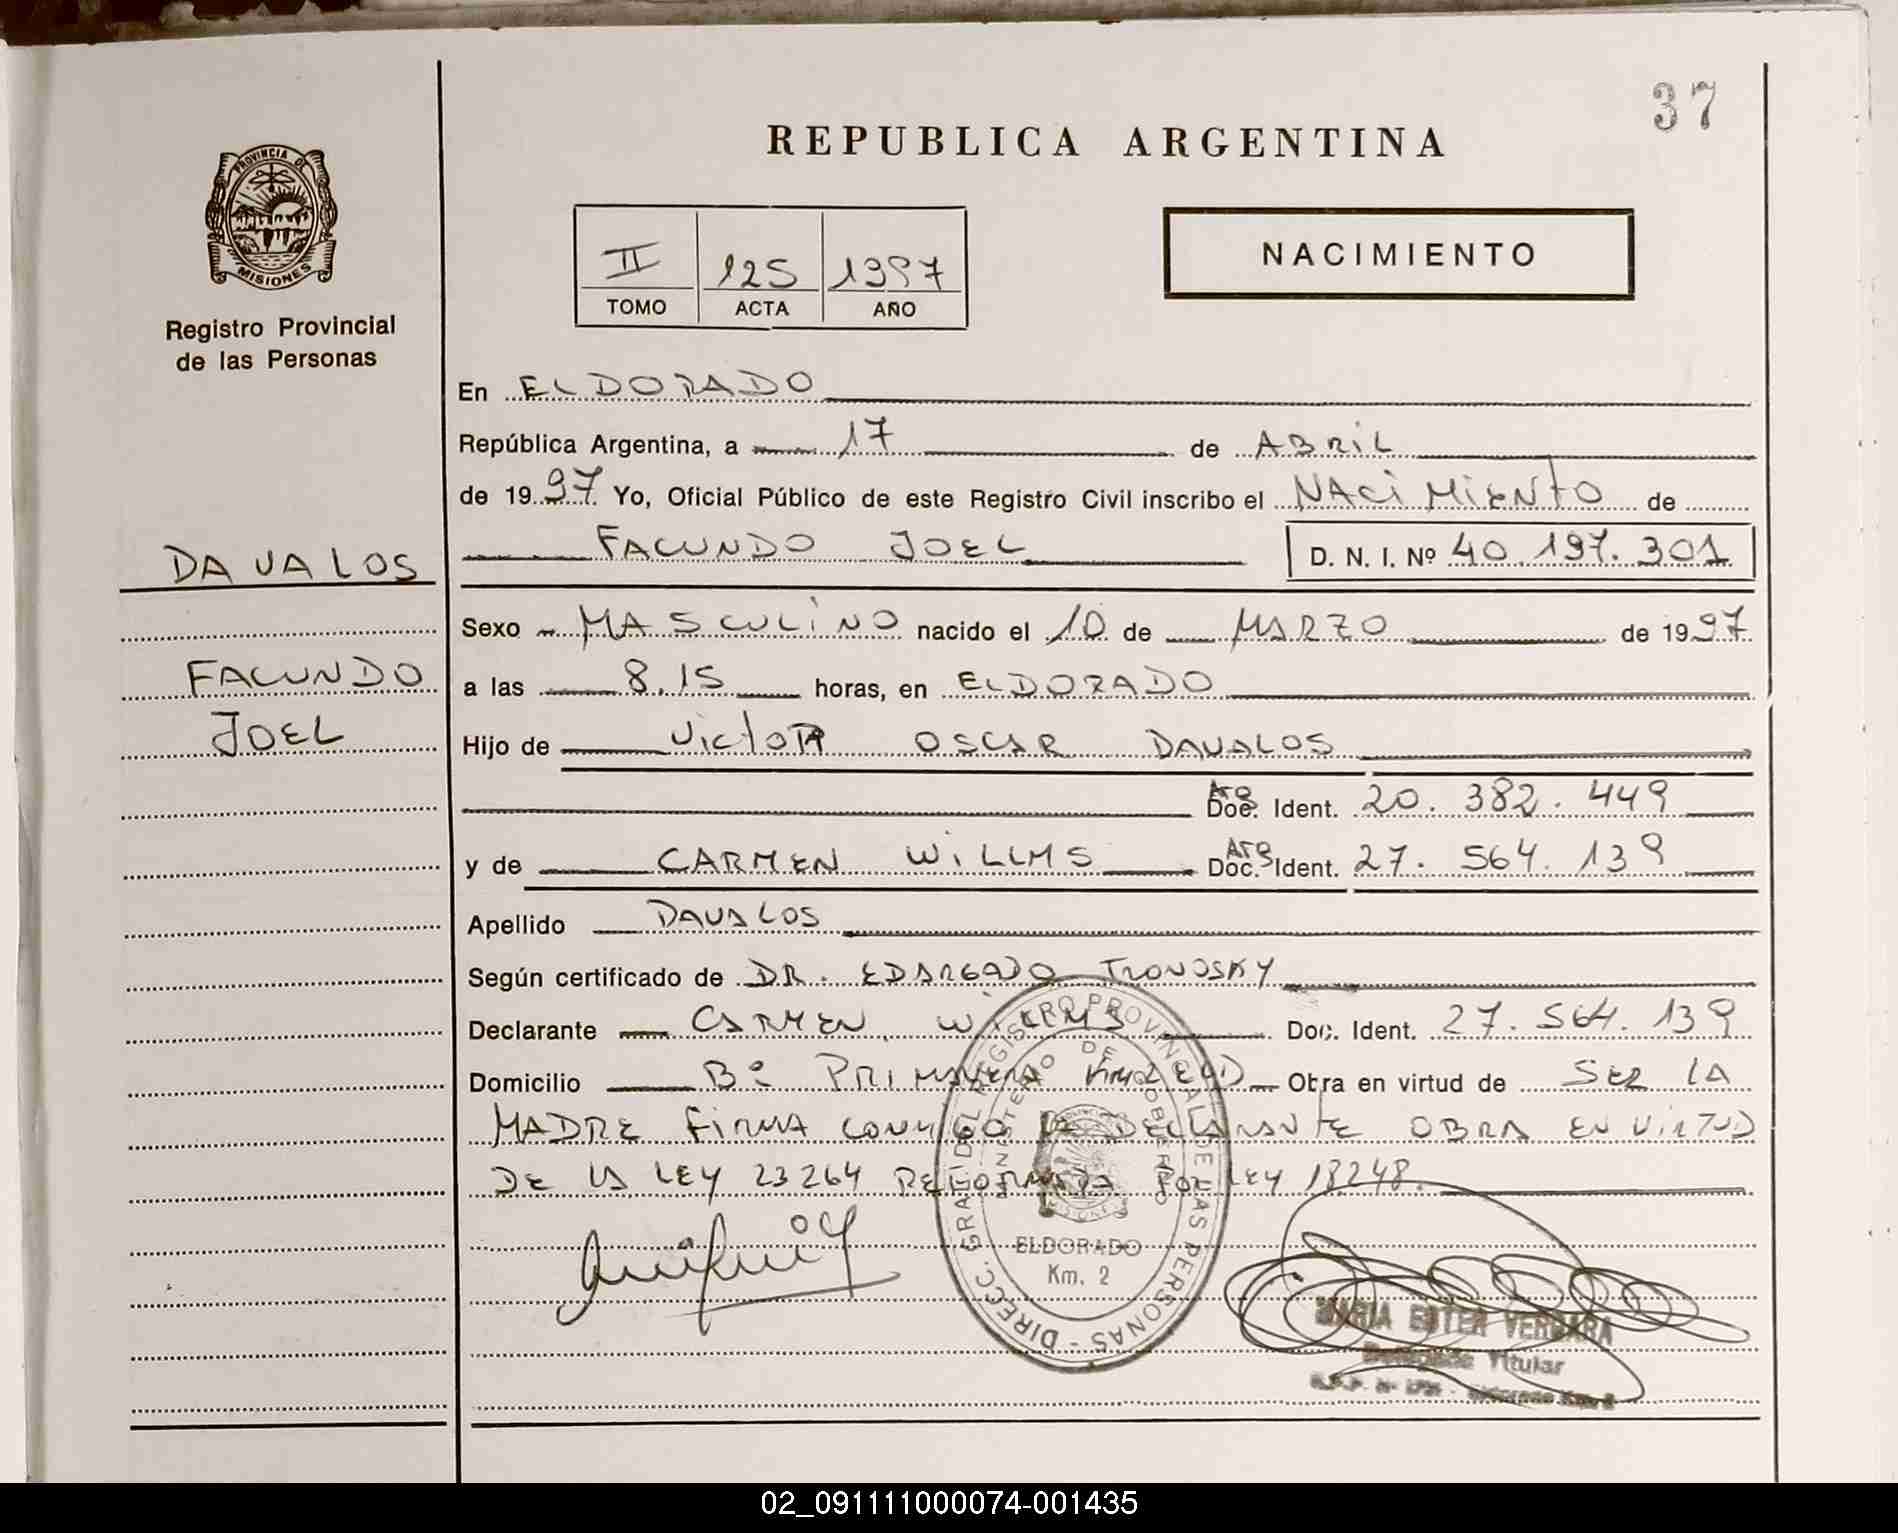 37
REPUBLICA ARGENTINA
PROVINCIA DE
MISIONES
Registro Provincial
de las Personas
NACIMIENTO
II 125 1997
TOMO ACTA AÑO
En ELDORADO
República Argentina, a 17 de ABRIL
de 1997 Yo, Oficial Público de este Registro Civil inscribo el NACIMIENTO de
DAVALOS
FACUNDO JOEL D. N. I. Nº 40.197.301
Sexo MASCULINO nacido el 10 de MARZO de 1997
FACUNDO
a las 8.15 horas, en ELDORADO
JOEL
Hijo de VICTOR OSCAR DAVALOS
Arg Doc. Ident. 20.382.449
y de CARMEN WILLMS Arg Doc. Ident. 27.564.139
Apellido DAVALOS
Según certificado de DR. EDARGADO TRONOSKY
Declarante CARMEN WILLMS Doc. Ident. 27.564.139
Domicilio Bº PRIMAVERA Obra en virtud de SER LA
MADRE FIRMA CONMIGO LA DECLARANTE OBRA EN VIRTUD
DE LA LEY 23264 POR LEY 18248.
DIREC. GRAL. DEL REGISTRO PROVINCIAL DE LAS PERSONAS
MINISTERIO DE GOBIERNO
MISIONES
ELDORADO
Km. 2
MARIA ESTER VERGARA
Delegada Titular
02_091111000074-001435